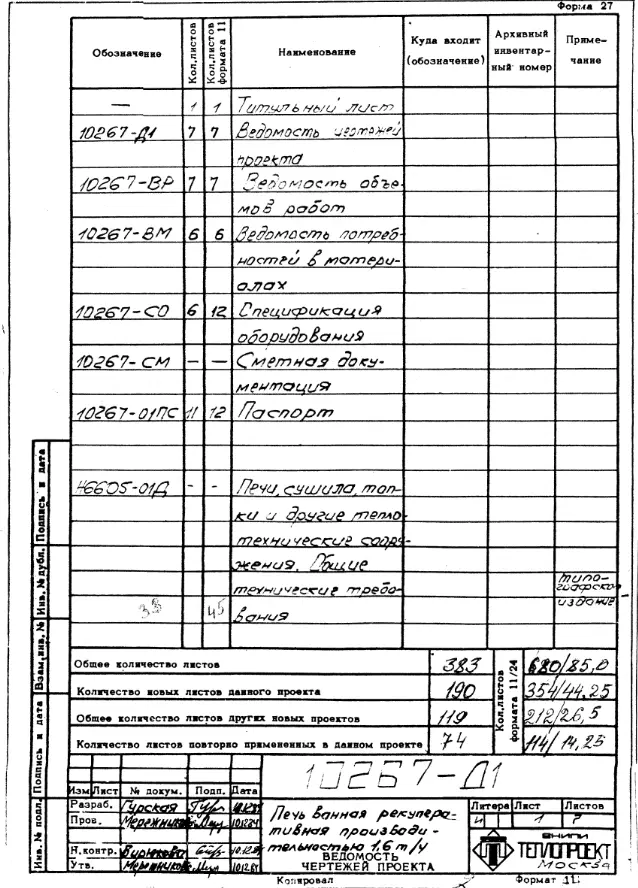 Форма 27
Обозначение Кол.листов Кол.листов формата 11 Наименование Куда входит (обозначение) Архивный инвентарный номер Примечание
— 1 1 Титульный лист
10267-Д1 7 7 Ведомость чертежей
проекта
10267-ВР 7 7 Ведомость объе-
мов работ
10267-ВМ 6 6 Ведомость потреб-
ностей в матери-
алах
10267-СО 6 12 Спецификация
оборудования
10267-СМ — — Сметная доку-
ментация
10267-01ПС 11 12 Паспорт
Н6605-01Д - - Печи, сушила, топ-
ки и другие тепло-
технические соору-
жения. Общие
технические требо- типо-
графское
33 45 вания издание
Общее количество листов 383 680/85,0
Количество новых листов данного проекта 190 354/44,25
Общее количество листов других новых проектов 119 212/26,5
Количество листов повторно примененных в данном проекте 74 114/14,25
Кол.листов формата 11/24
Инв. № подл. Подпись и дата Взам.инв. № Инв. № дубл. Подпись и дата
10267-Д1
Изм Лист № докум. Подп. Дата
Разраб. Гурская
Пров. Мережников 10.12.84
Н.контр. Бирюкова
Утв. Мережников
Печь ванная рекупера-
тивная производи-
тельностью 1,6 т/ч
ВЕДОМОСТЬ
ЧЕРТЕЖЕЙ ПРОЕКТА
Литера Лист Листов
и 1 7
ВНИПИ
ТЕПЛОПРОЕКТ
МОСКВА
Копировал Формат 11